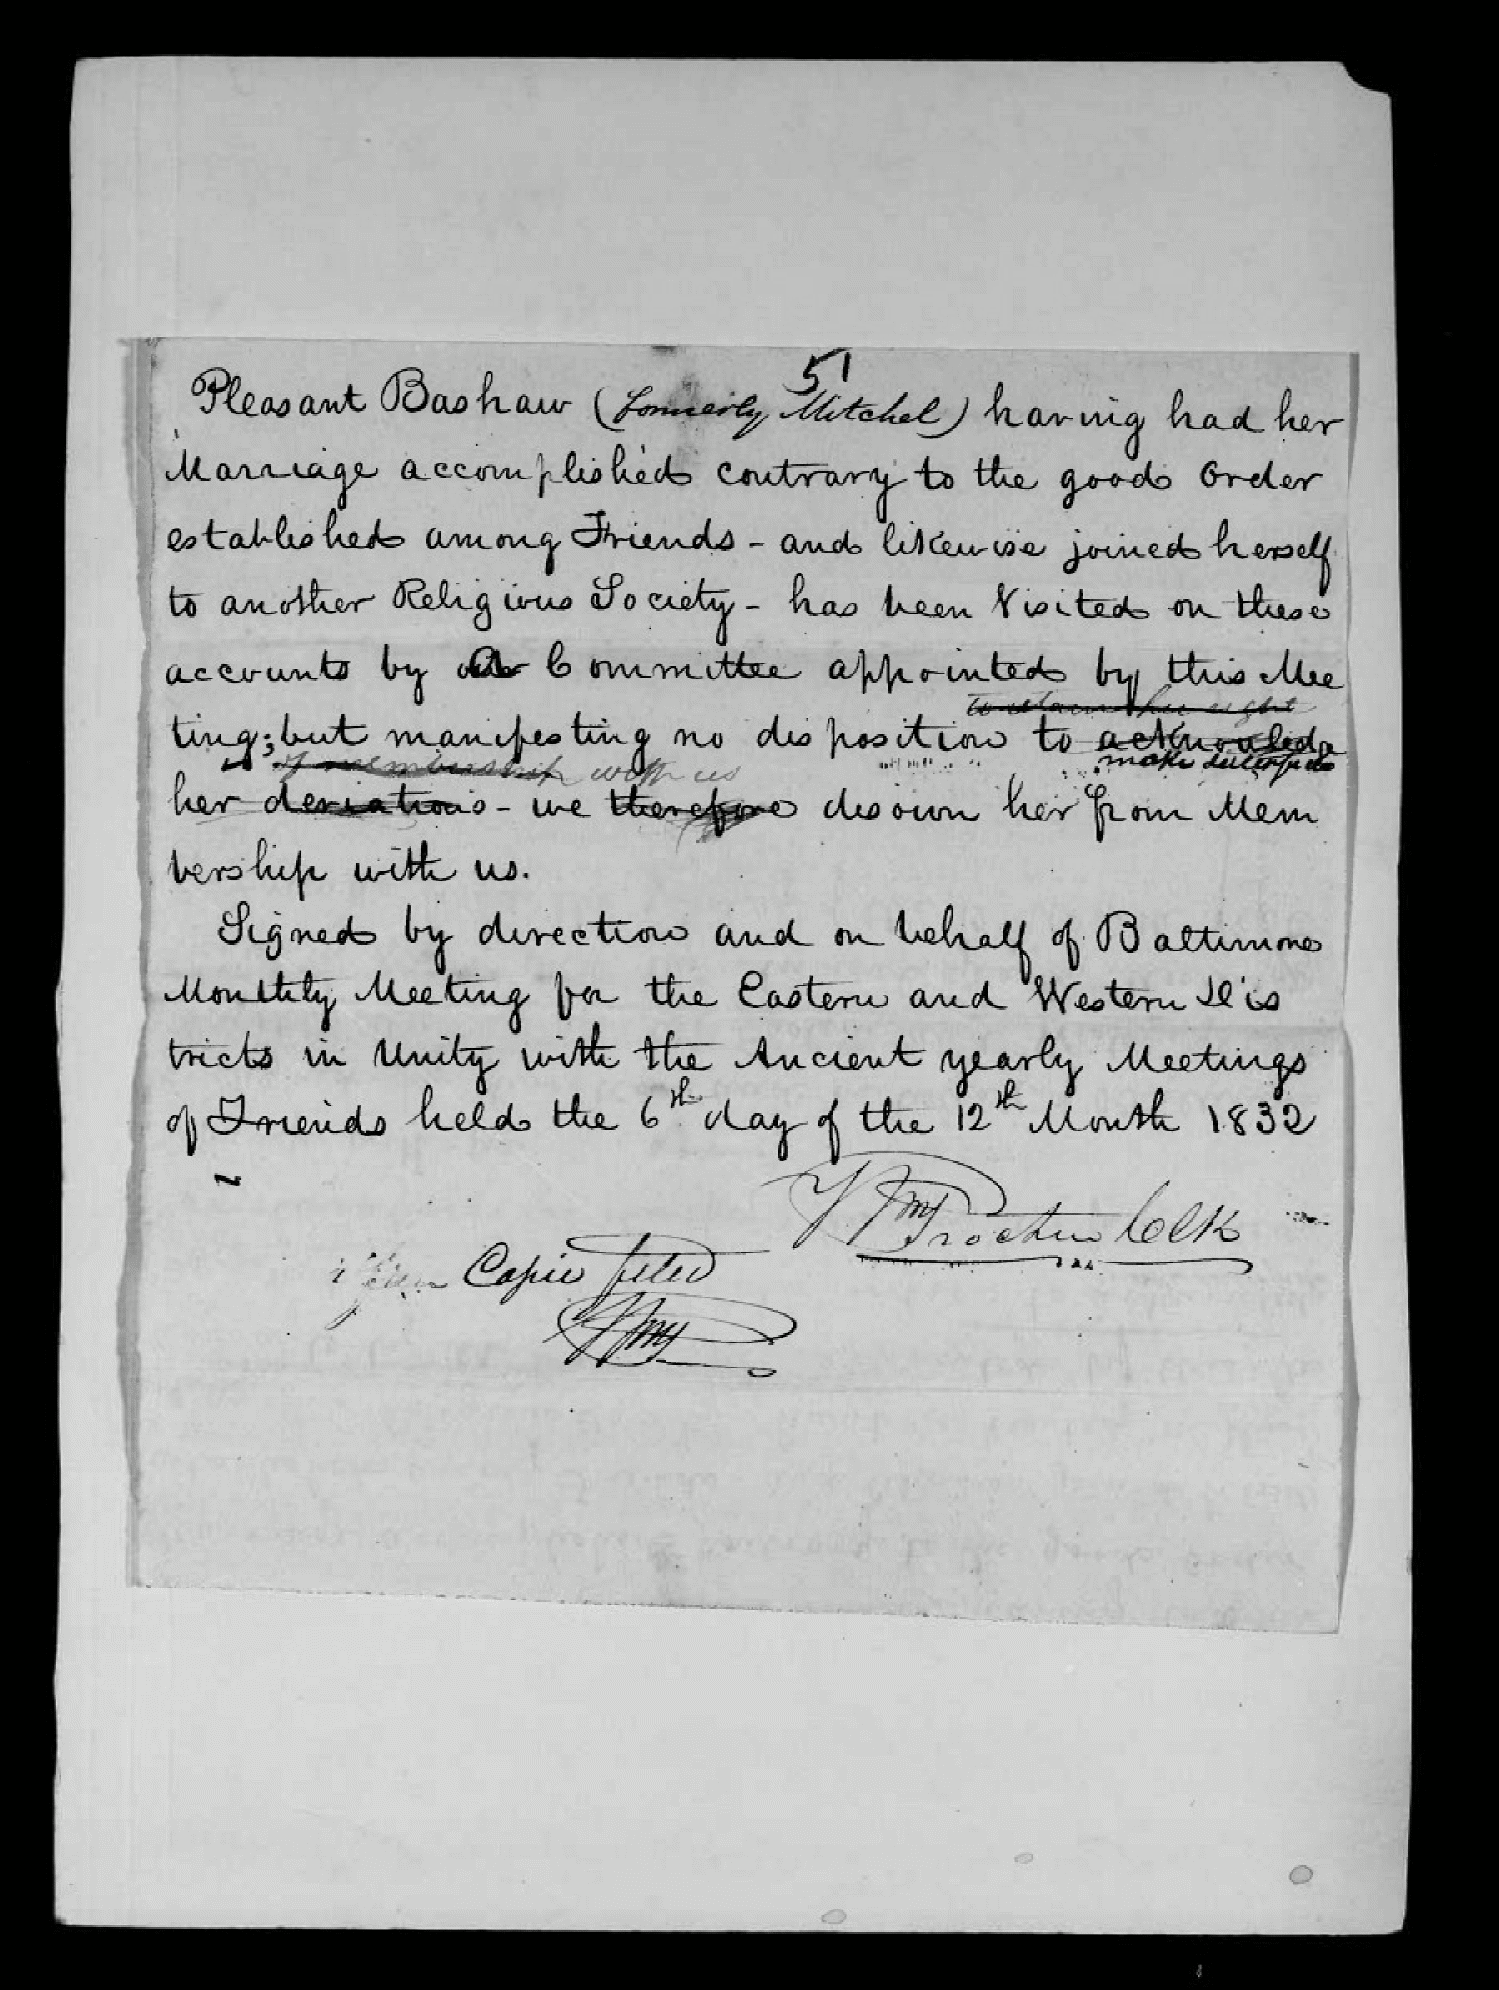 51
Pleasant Bashaw (formerly Mitchel) having had her
Marriage accomplished contrary to the good Order
established among Friends - and likewise joined herself
to another Religious Society - has been Visited on these
accounts by a Committee appointed by this Mee
to retain her right
ting; but manifesting no disposition to acknowledge
make
of membership with us
her deviations - we therefore disown her from Mem
bership with us.
Signed by direction and on behalf of Baltimore
Monthly Meeting for the Eastern and Western Dis
tricts in Unity with the Ancient yearly Meetings
of Friends held the 6th day of the 12th Month 1832
Wm Procter Clk
Copie filed
Wm P